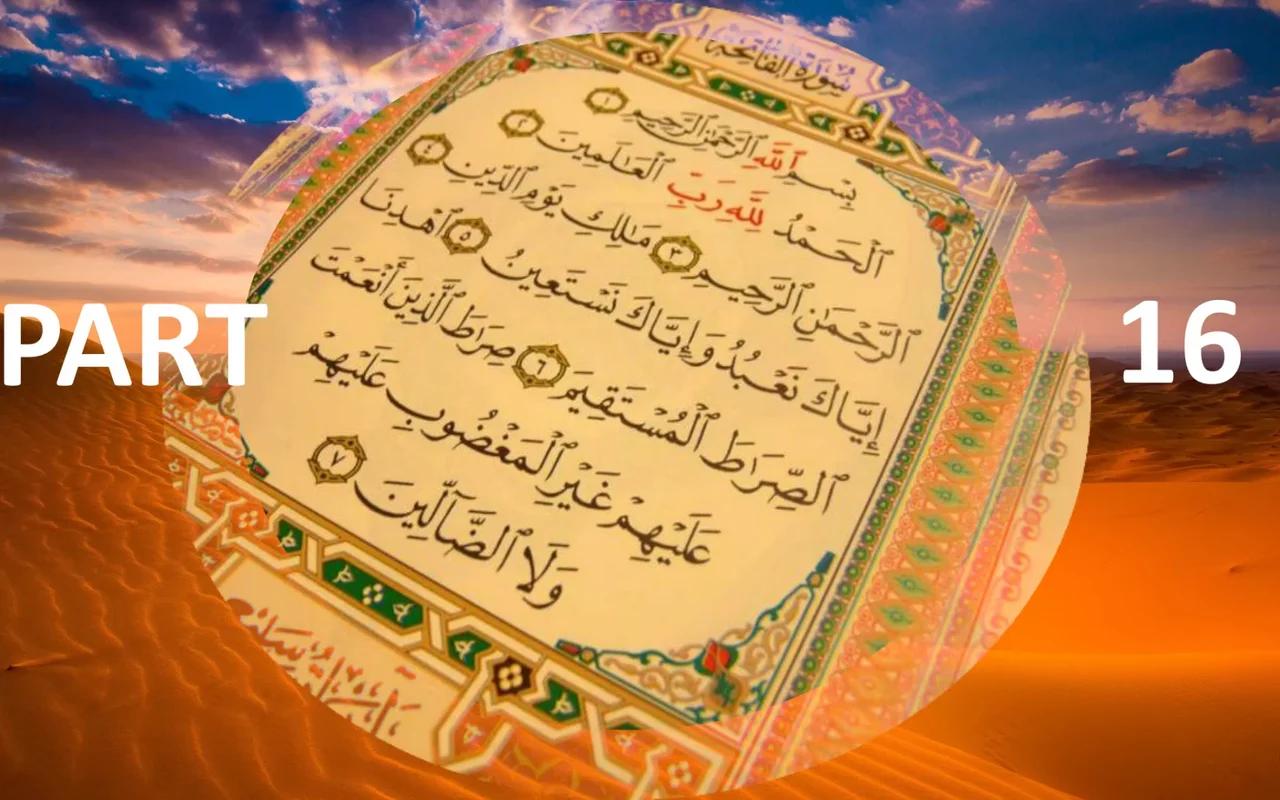 سُورَةُ الفَاتِحَة
بِسْمِ ٱللَّهِ ٱلرَّحْمَٰنِ ٱلرَّحِيمِ ١
ٱلْحَمْدُ لِلَّهِ رَبِّ ٱلْعَـٰلَمِينَ ٢
ٱلرَّحْمَٰنِ ٱلرَّحِيمِ ٣ مَـٰلِكِ يَوْمِ ٱلدِّينِ ٤
إِيَّاكَ نَعْبُدُ وَإِيَّاكَ نَسْتَعِينُ ٥ ٱهْدِنَا
ٱلصِّرَاطَ ٱلْمُسْتَقِيمَ ٦ صِرَاطَ ٱلَّذِينَ أَنْعَمْتَ
عَلَيْهِمْ غَيْرِ ٱلْمَغْضُوبِ عَلَيْهِمْ
وَلَا ٱلضَّآلِّينَ ٧
PART 16